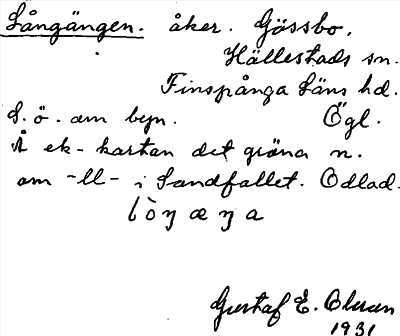 Långängen. åker. Gössbo.
Hällestads sn.
Finspånga Läns hd.
S.ö. om byn. Ögl.
Å ek-kartan det gröna n.
om -ll- i Sandfallet. Odlad.
lòŋæŋa
Gustaf E. Olsson
1931